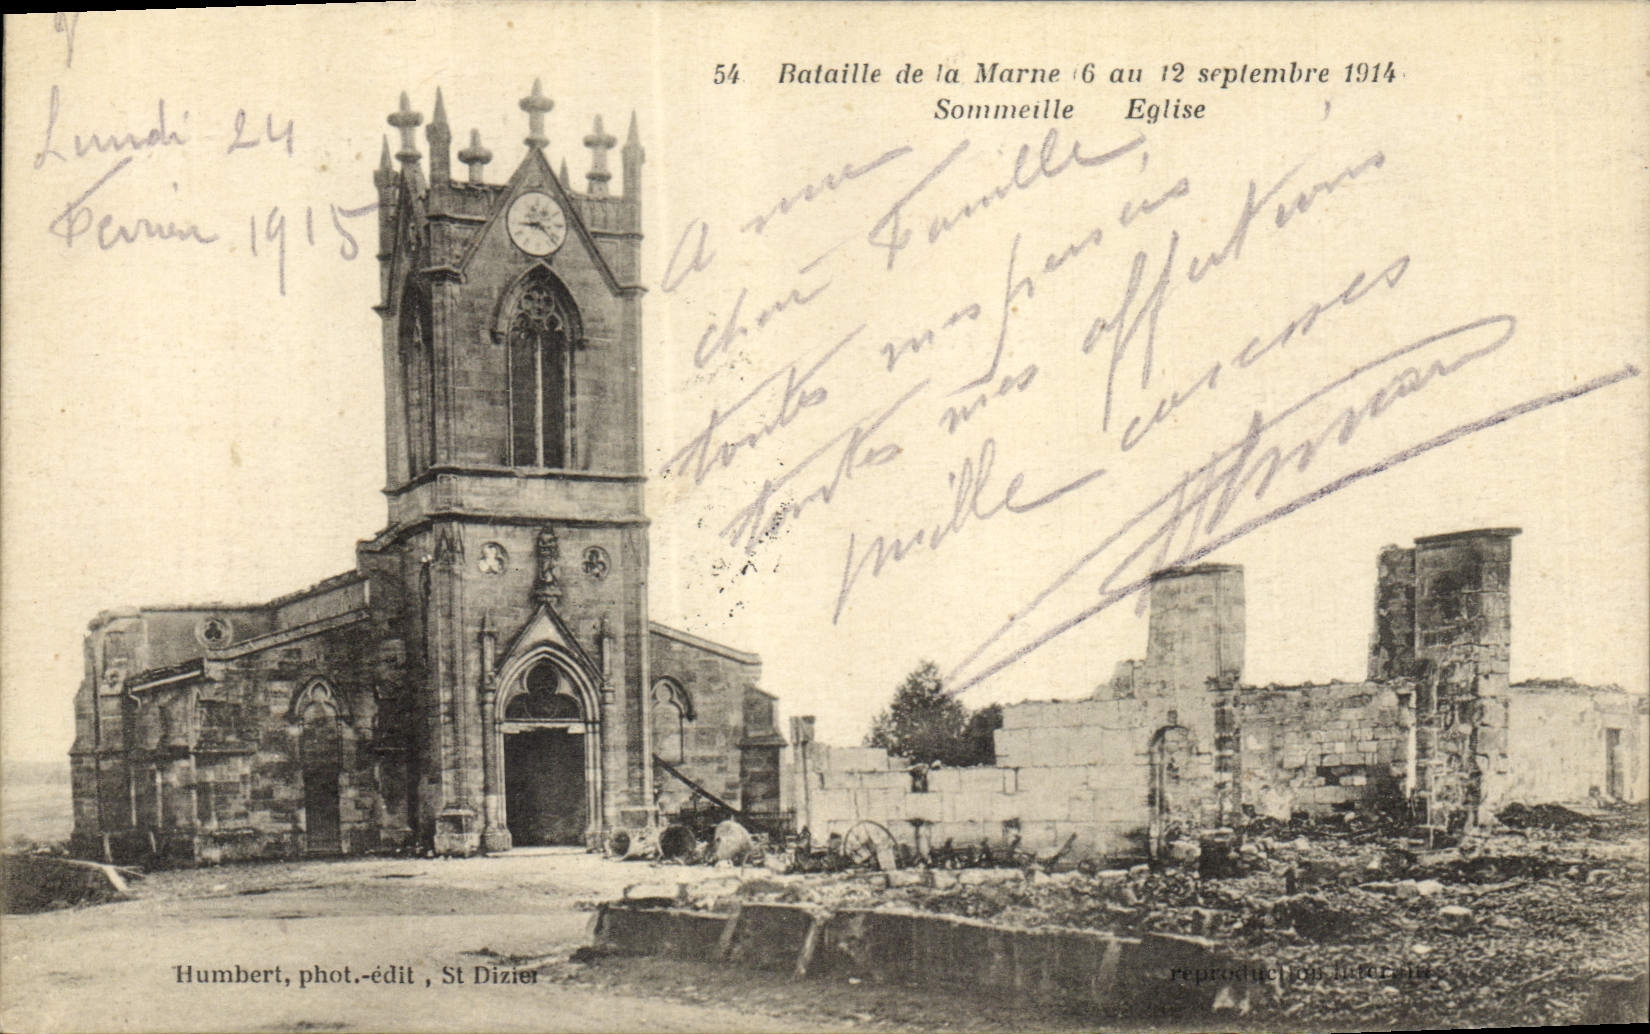 54 Bataille de la Marne (6 au 12 septembre 1914
Sommeille Eglise
Lundi 24
Fevrier 1915
A me
chere Famille,
toutes mes pensées
toutes mes affections
mille caresses
Humbert, phot.-édit, St Dizier
reproduction interdite